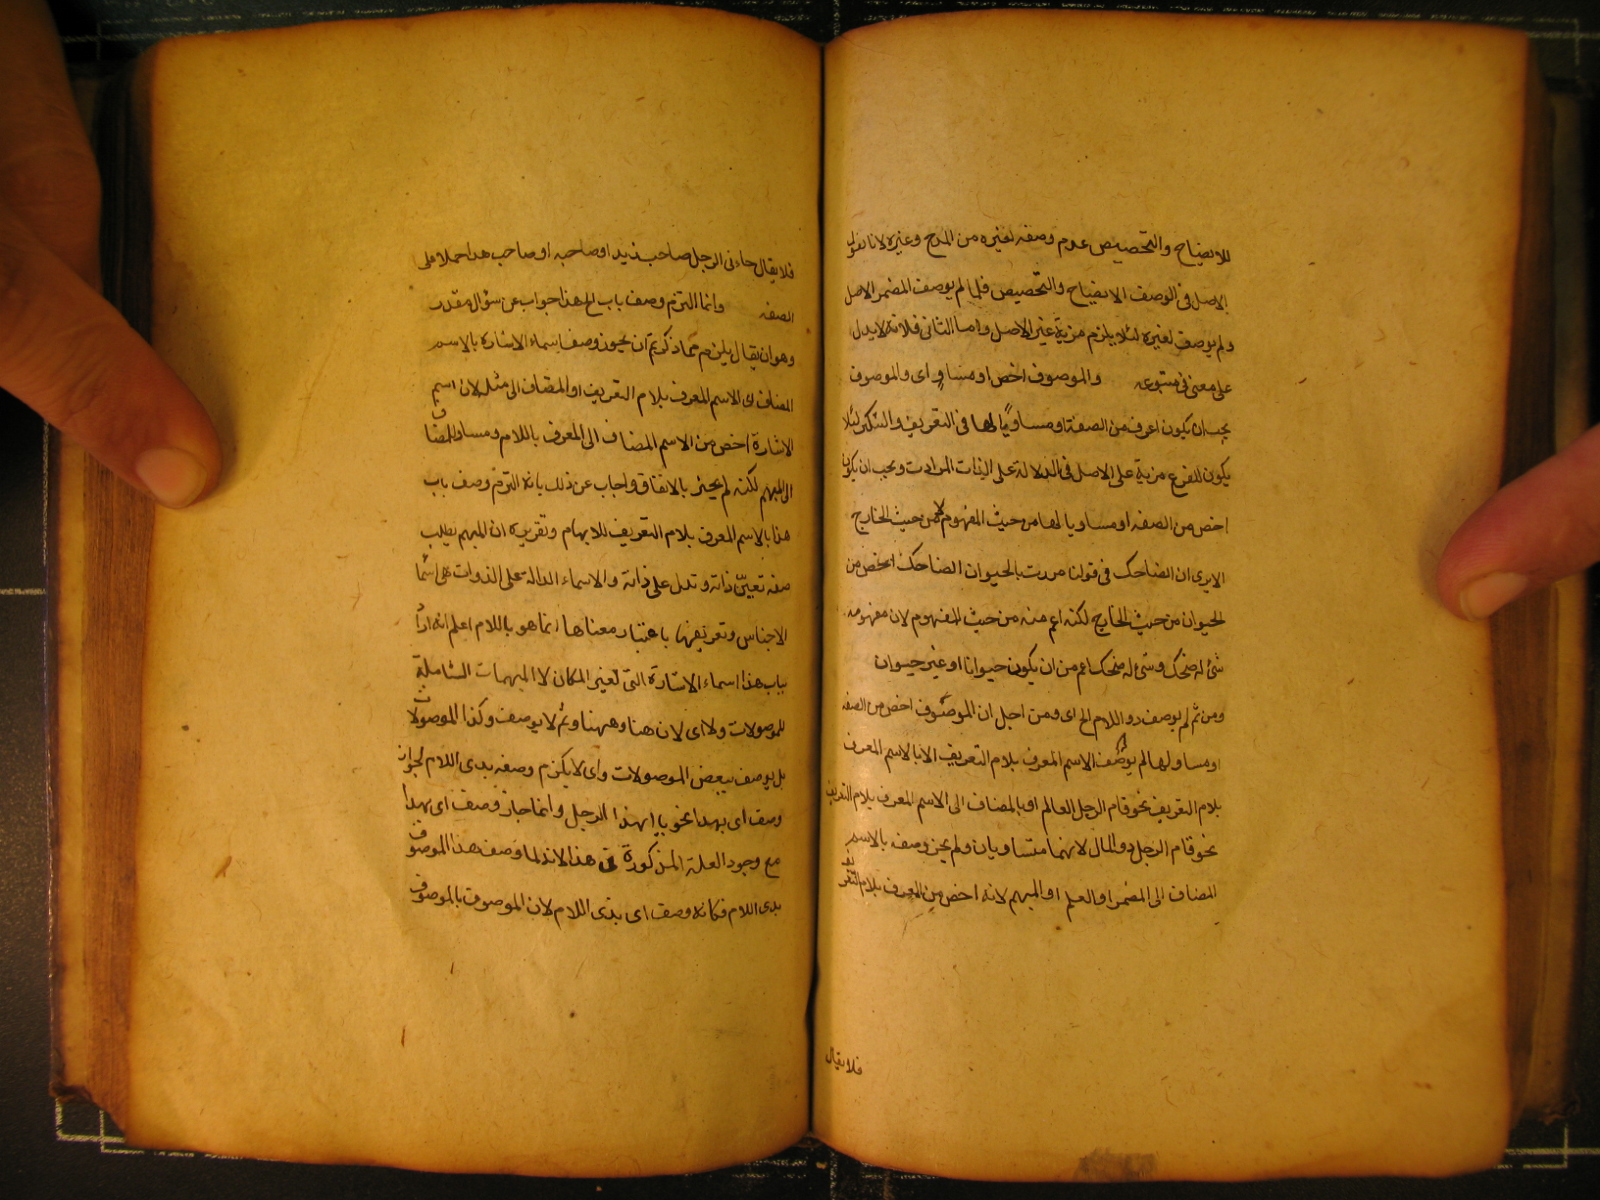 للايضاح والتخصيص عدم وصفه لغيره من المدح وغيره لانا نقول
الاصل فى الوصف الايضاح والتخصيص فلما لم يوصف المضمر الاصل
ولم يوصف لغيره لئلا يلزم مزية غير الاصل واما الثانى فلانه لا يدل
على معنى فى متبوعه والموصوف اخص او مساو اى والموصوف
يجب ان يكون اعرف من الصفة او مساويا لها فى التعريف والتنكير لئلا
يكون للفرع مزية على الاصل فى الدلالة على الذات المرادة ويجب ان يكون
اخص من الصفه او مساويا لها من حيث المفهوم لا من حيث الخارج
الايرى ان الضاحك فى قولنا مررت بالحيوان الضاحك اخص من
الحيوان من حيث الخارج لكنه اعم منه من حيث المفهوم لان مفهومه
شئ له ضحك وشئ له ضحك اعم من ان يكون حيوانا او غير حيوان
ومن ثم لم يوصف ذو اللام الخ اى ومن اجل ان الموصوف اخص من الصفه
او مساو لها لم يوصف الاسم المعرف بلام التعريف الا بالاسم المعرف
بلام التعريف نحو قام الرجل العالم او بالمضاف الى الاسم المعرف بلام التعريف
نحو قام الرجل ذو المال لانهما متساويان ولم يجز وصفه بالاسم
المضاف الى المضمر او العلم او المبهم لانه اخص من المعرف بلام التعريف
فلا يقال
فلا يقال جاءنى الرجل صاحب زيد او صاحبه او صاحب هذا حملا على
الصفه وانما التزم وصف باب الخ هذا جواب عن سؤال مقدر
وهو ان يقال يلزم مما ذكرتم ان يجوز وصف اسماء الاشارة بالاسم
المضاف الى الاسم المعرف بلام التعريف او المضاف الى مثله لان اسم
الاشارة اخص من الاسم المضاف الى المعرف باللام ومساو للمضاف
الى المبهم لكنه لم يجز بالاتفاق واجاب عن ذلك بانه التزم وصف باب
هذا بالاسم المعرف بلام التعريف للابهام وتقريره ان المبهم يطلب
صفه تعين ذاته وتدل على ذاته والاسماء الدالة على الذوات هى اسما
الاجناس وتعريفها باعتبار معناها انما هو باللام اعلم انه اراد
بباب هذا اسماء الاشارة التى لغير المكان لا المبهمات الشاملة
للموصولات ولا اى لان هنا وههنا وثم لا يوصف وكذا الموصولات
بل يوصف ببعض الموصولات واى لا يلزم وصفه بذى اللام لجواز
وصف اى بهذا نحو يا ايهذا الرجل وانما جاز وصف اى بهذا
مع وجود العلة المذكورة فى هذا لانه لما وصف هذا الموصوف
بذى اللام فكانه وصف اى بذى اللام لان الموصوف بالموصوف